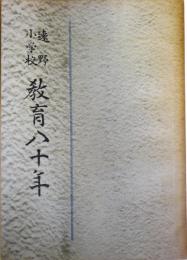 遠野
小学校
教育八十年